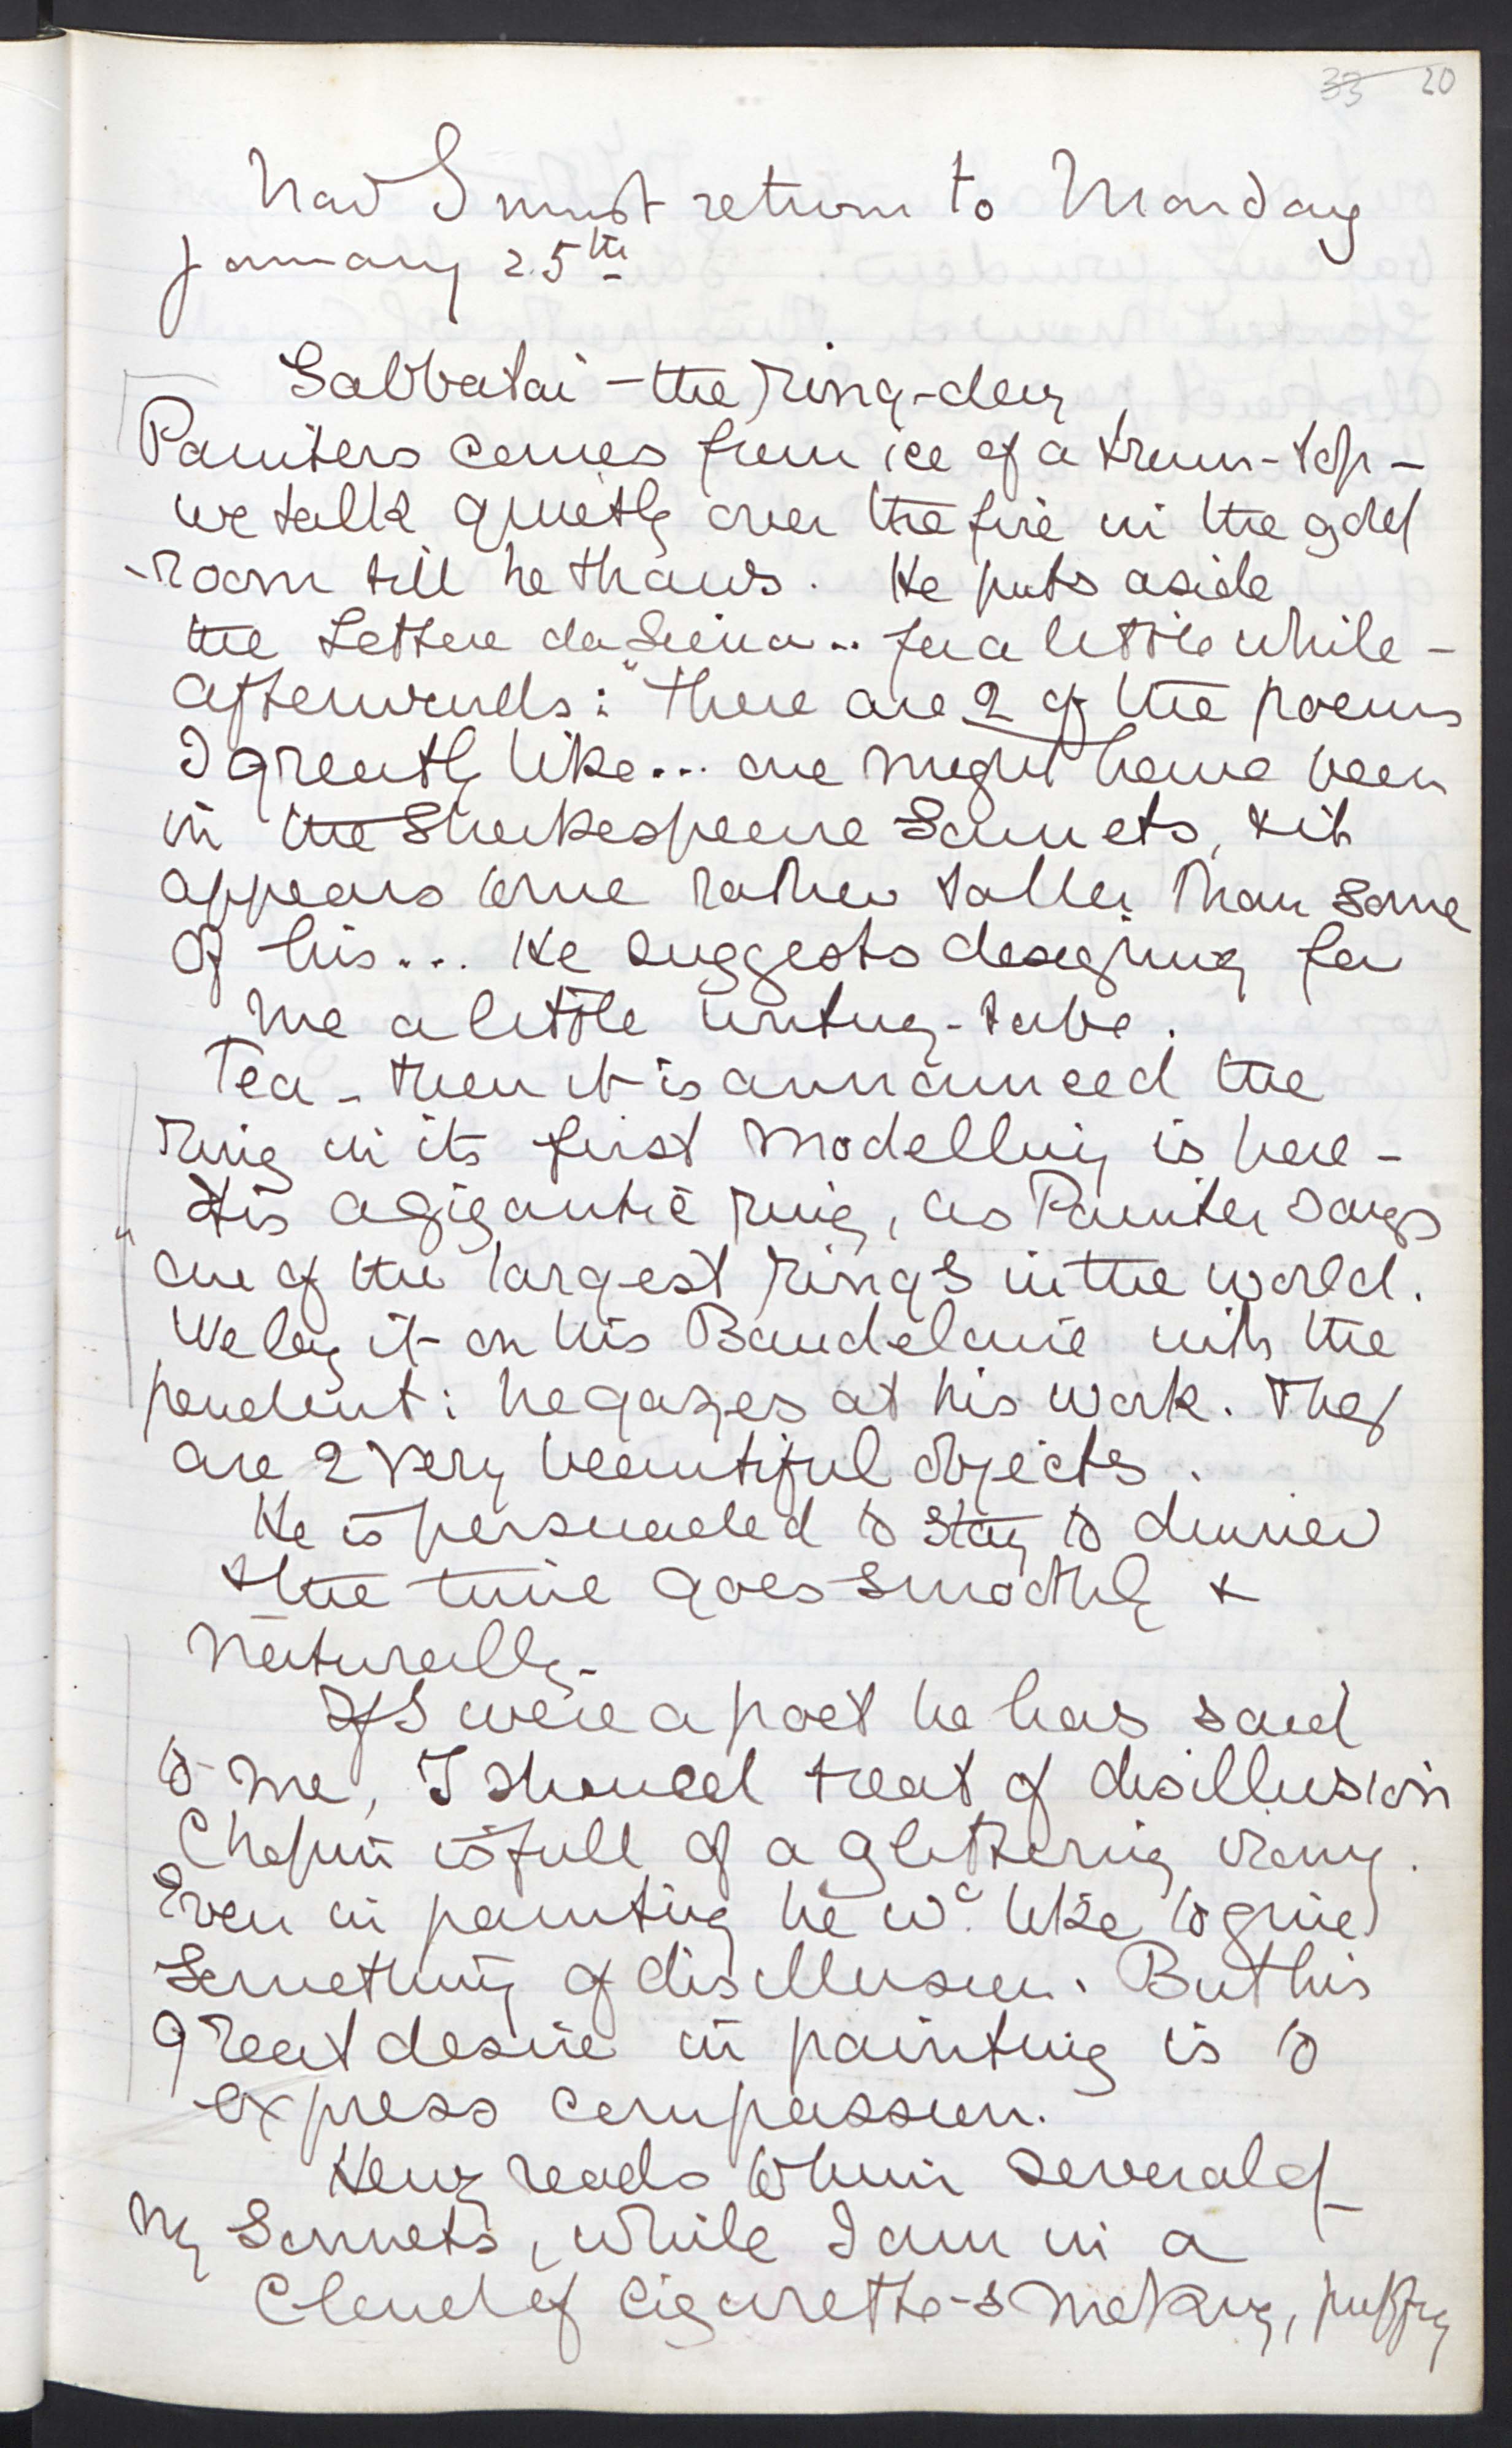 33 20
Now I must return to Monday
January 25th
Sabbatai - the ring-day
Painters comes from ice of a tram-top -
we talk quietly over the fire in the gold
-room till he thaws. He puts aside
the Lettere da Siena.. for a little while -
afterwards: "there are 2 of the poems
I greatly like... one might have been
in the Shakespeare Sonnets, & it
appears to me rather taller than some
of his... He suggests designing for
me a little writing-table.
Tea - then it is announced the
ring in its first modelling is here -
tis a gigantic ring, as Painter says
one of the largest rings in the world.
We lay it on his Baudelaire with the
pendent: he gazes at his work. They
are 2 very beautiful objects.
He is persuaded to stay to dinner
& the time goes smoothly &
naturally -
If I were a poet he has said
to me, I should treat of disillusion
Chopin is full of a glittering irony.
Even in painting he wd. like to give
something of disillusion. But his
great desire in painting is to
express compassion.
Heny reads to him several of
my Sonnets, while I am in a
cloud of cigarette-smoking, puffing